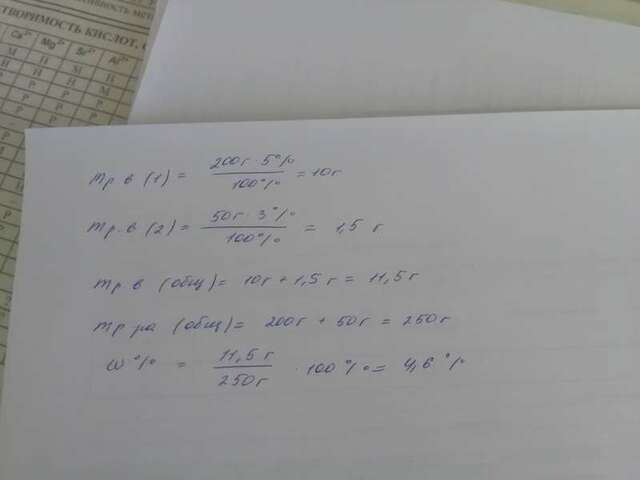 ТВОРИМОСТЬ КИСЛОТ,
Ca²⁺ Mg²⁺ Sr²⁺ Al³⁺
m р.в (1) = 200г · 5% / 100% = 10г
m р.в (2) = 50г · 3% / 100% = 1,5 г
m р.в (общ) = 10г + 1,5 г = 11,5г
m р-ра (общ) = 200г + 50г = 250г
ω % = 11,5 г / 250г · 100% = 4,6 %